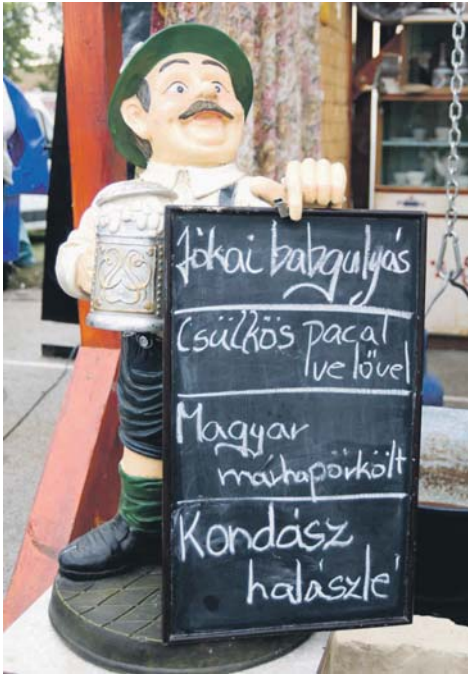 Jókai babgulyás
Csülkös pacal
velővel
Magyar
marhapörkölt
Kondász
halászlé